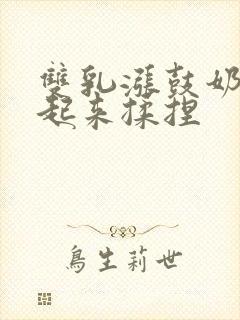 雙乳漲鼓奶
起来揉捏
鳥生莉世